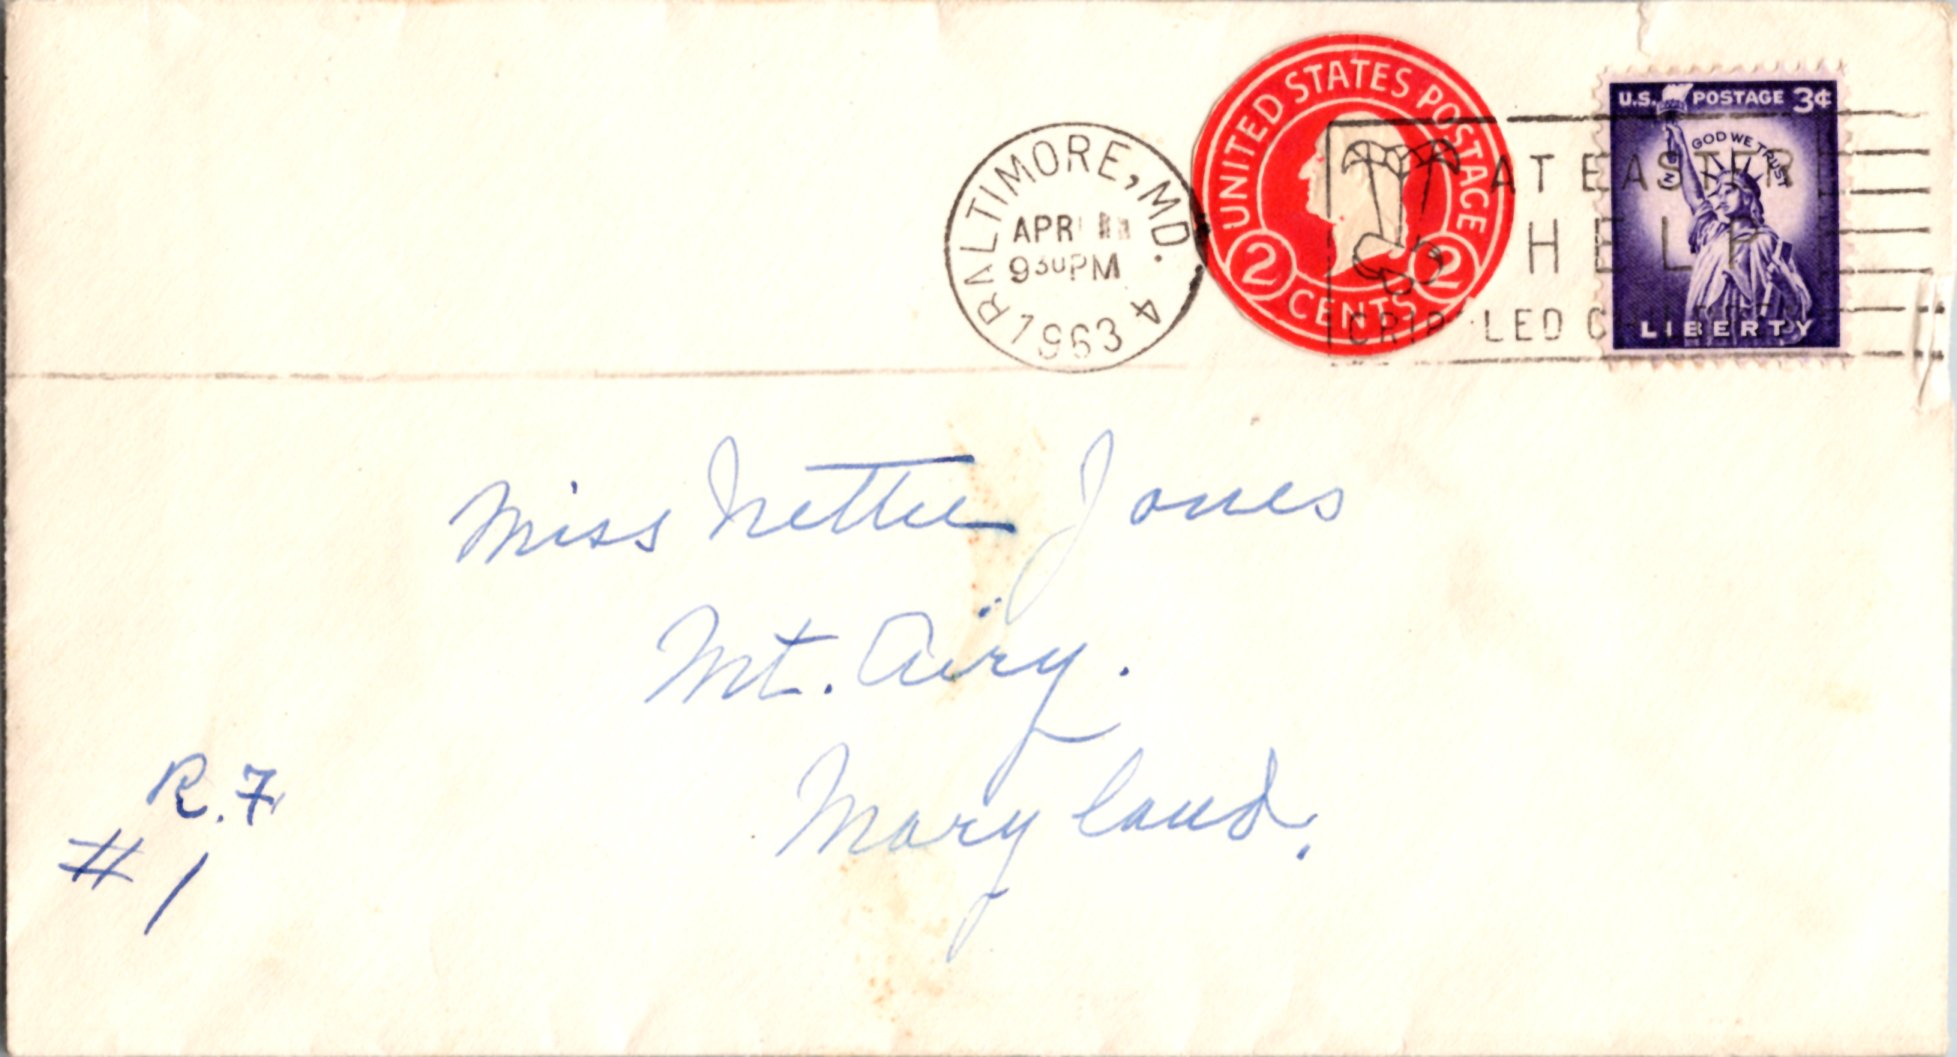 BALTIMORE, MD. 4
APR
9 30 PM
1963
UNITED STATES POSTAGE
2 CENTS 2
AT EASTER
HELP
CRIPPLED
U.S. POSTAGE 3¢
IN GOD WE TRUST
LIBERTY
Miss Nettie Jones
Mt. Airy.
Maryland.
R.7
# 1